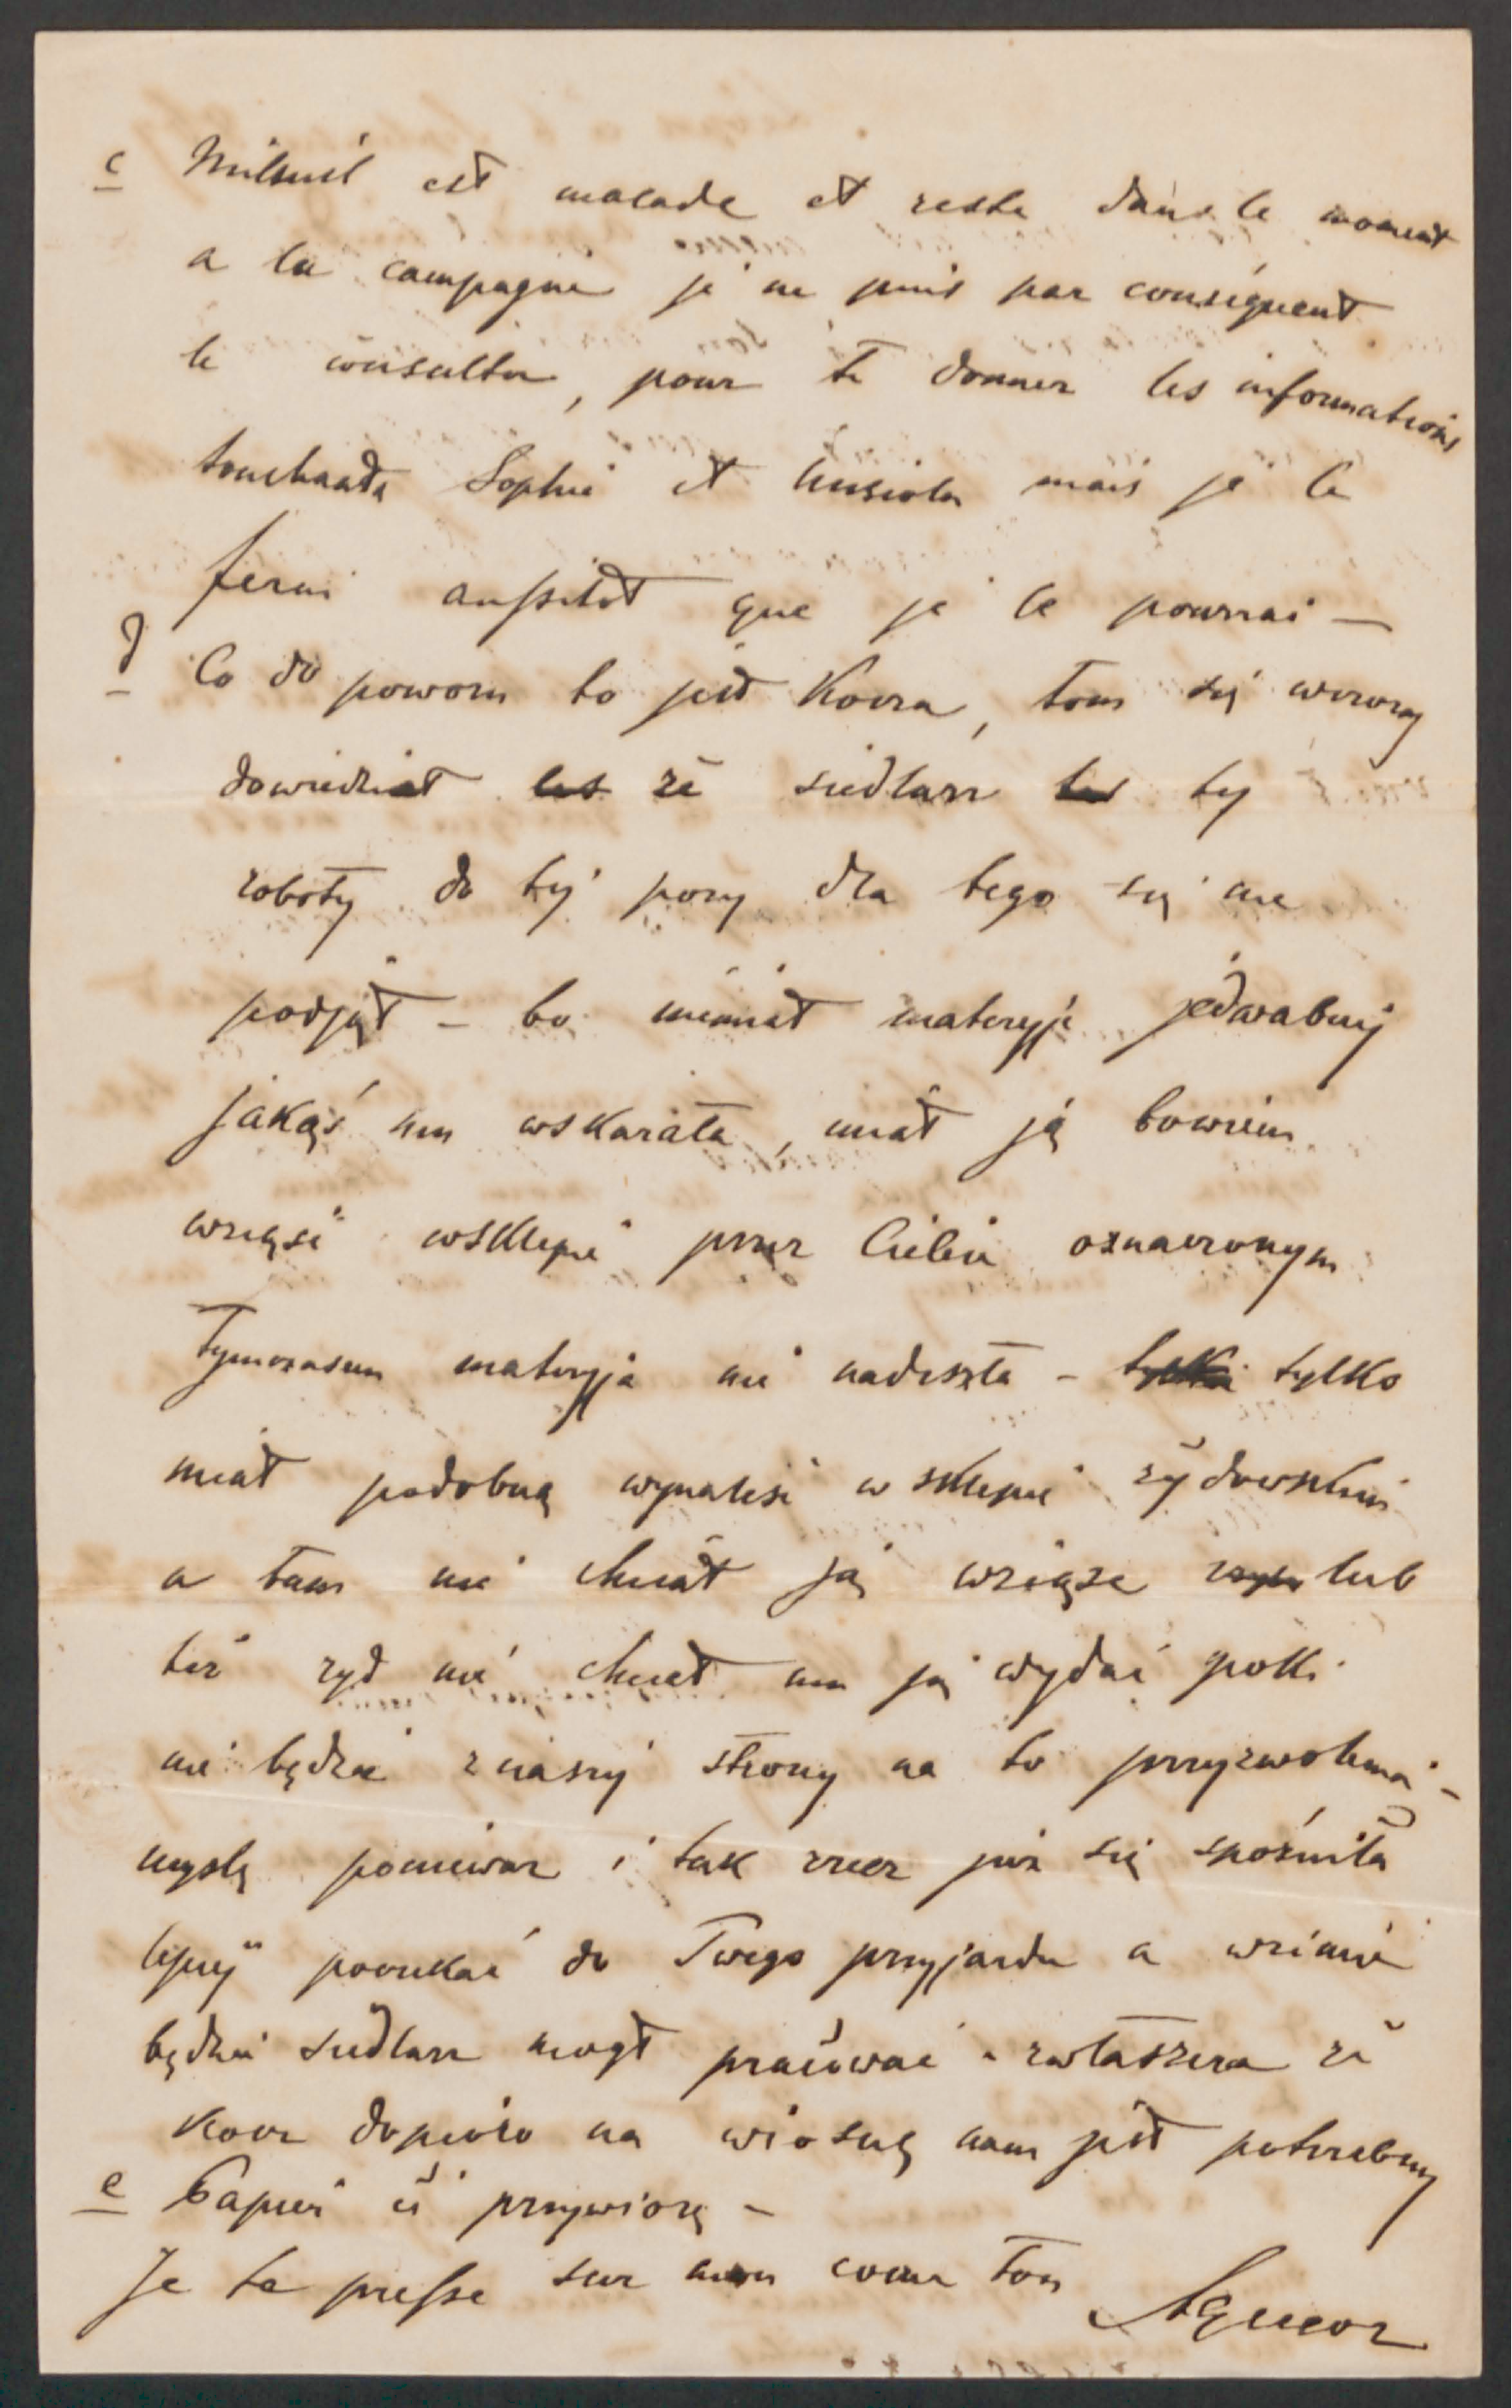 c Milsuil est malade et reste dans le moment
a la campagne je ne puis par conséquent
le consulter, pour te donner les informations
touchants Sophie et mais je le
ferai aussitot que je le pourrai —
d Co do powozu to jest Kocza, tom się wczoraj
dowiedział les że siedlarz tes tej
roboty do tej pory dla tego się nie
podjął – bo niemiał materyji jedwabnej
jakąś mu wskazała, miał ją bowiem
wziąść wsklepie przez Ciebie oznaczonym
Tymczasem materyja nie nadeszła – tylko tylko
miał podobną wynaleść w sklepie żydowskim
a tam nie chciał ją wziąsc lub
też zyd nie chciał mu ją wydać poki
nie będzie z naszej strony na to przyzwolenia –
myslę ponieważ i tak rzecz już się spoźniła
lepiej poczekać do Twego przyjazdu a wzimie
będzie siedlarz mogł pracować – zwłaszcza że
kocz dopiero na wiosnę nam jest potrzebny
e Papier ci przywiozę –
Je te presse sur mon coeur Ton